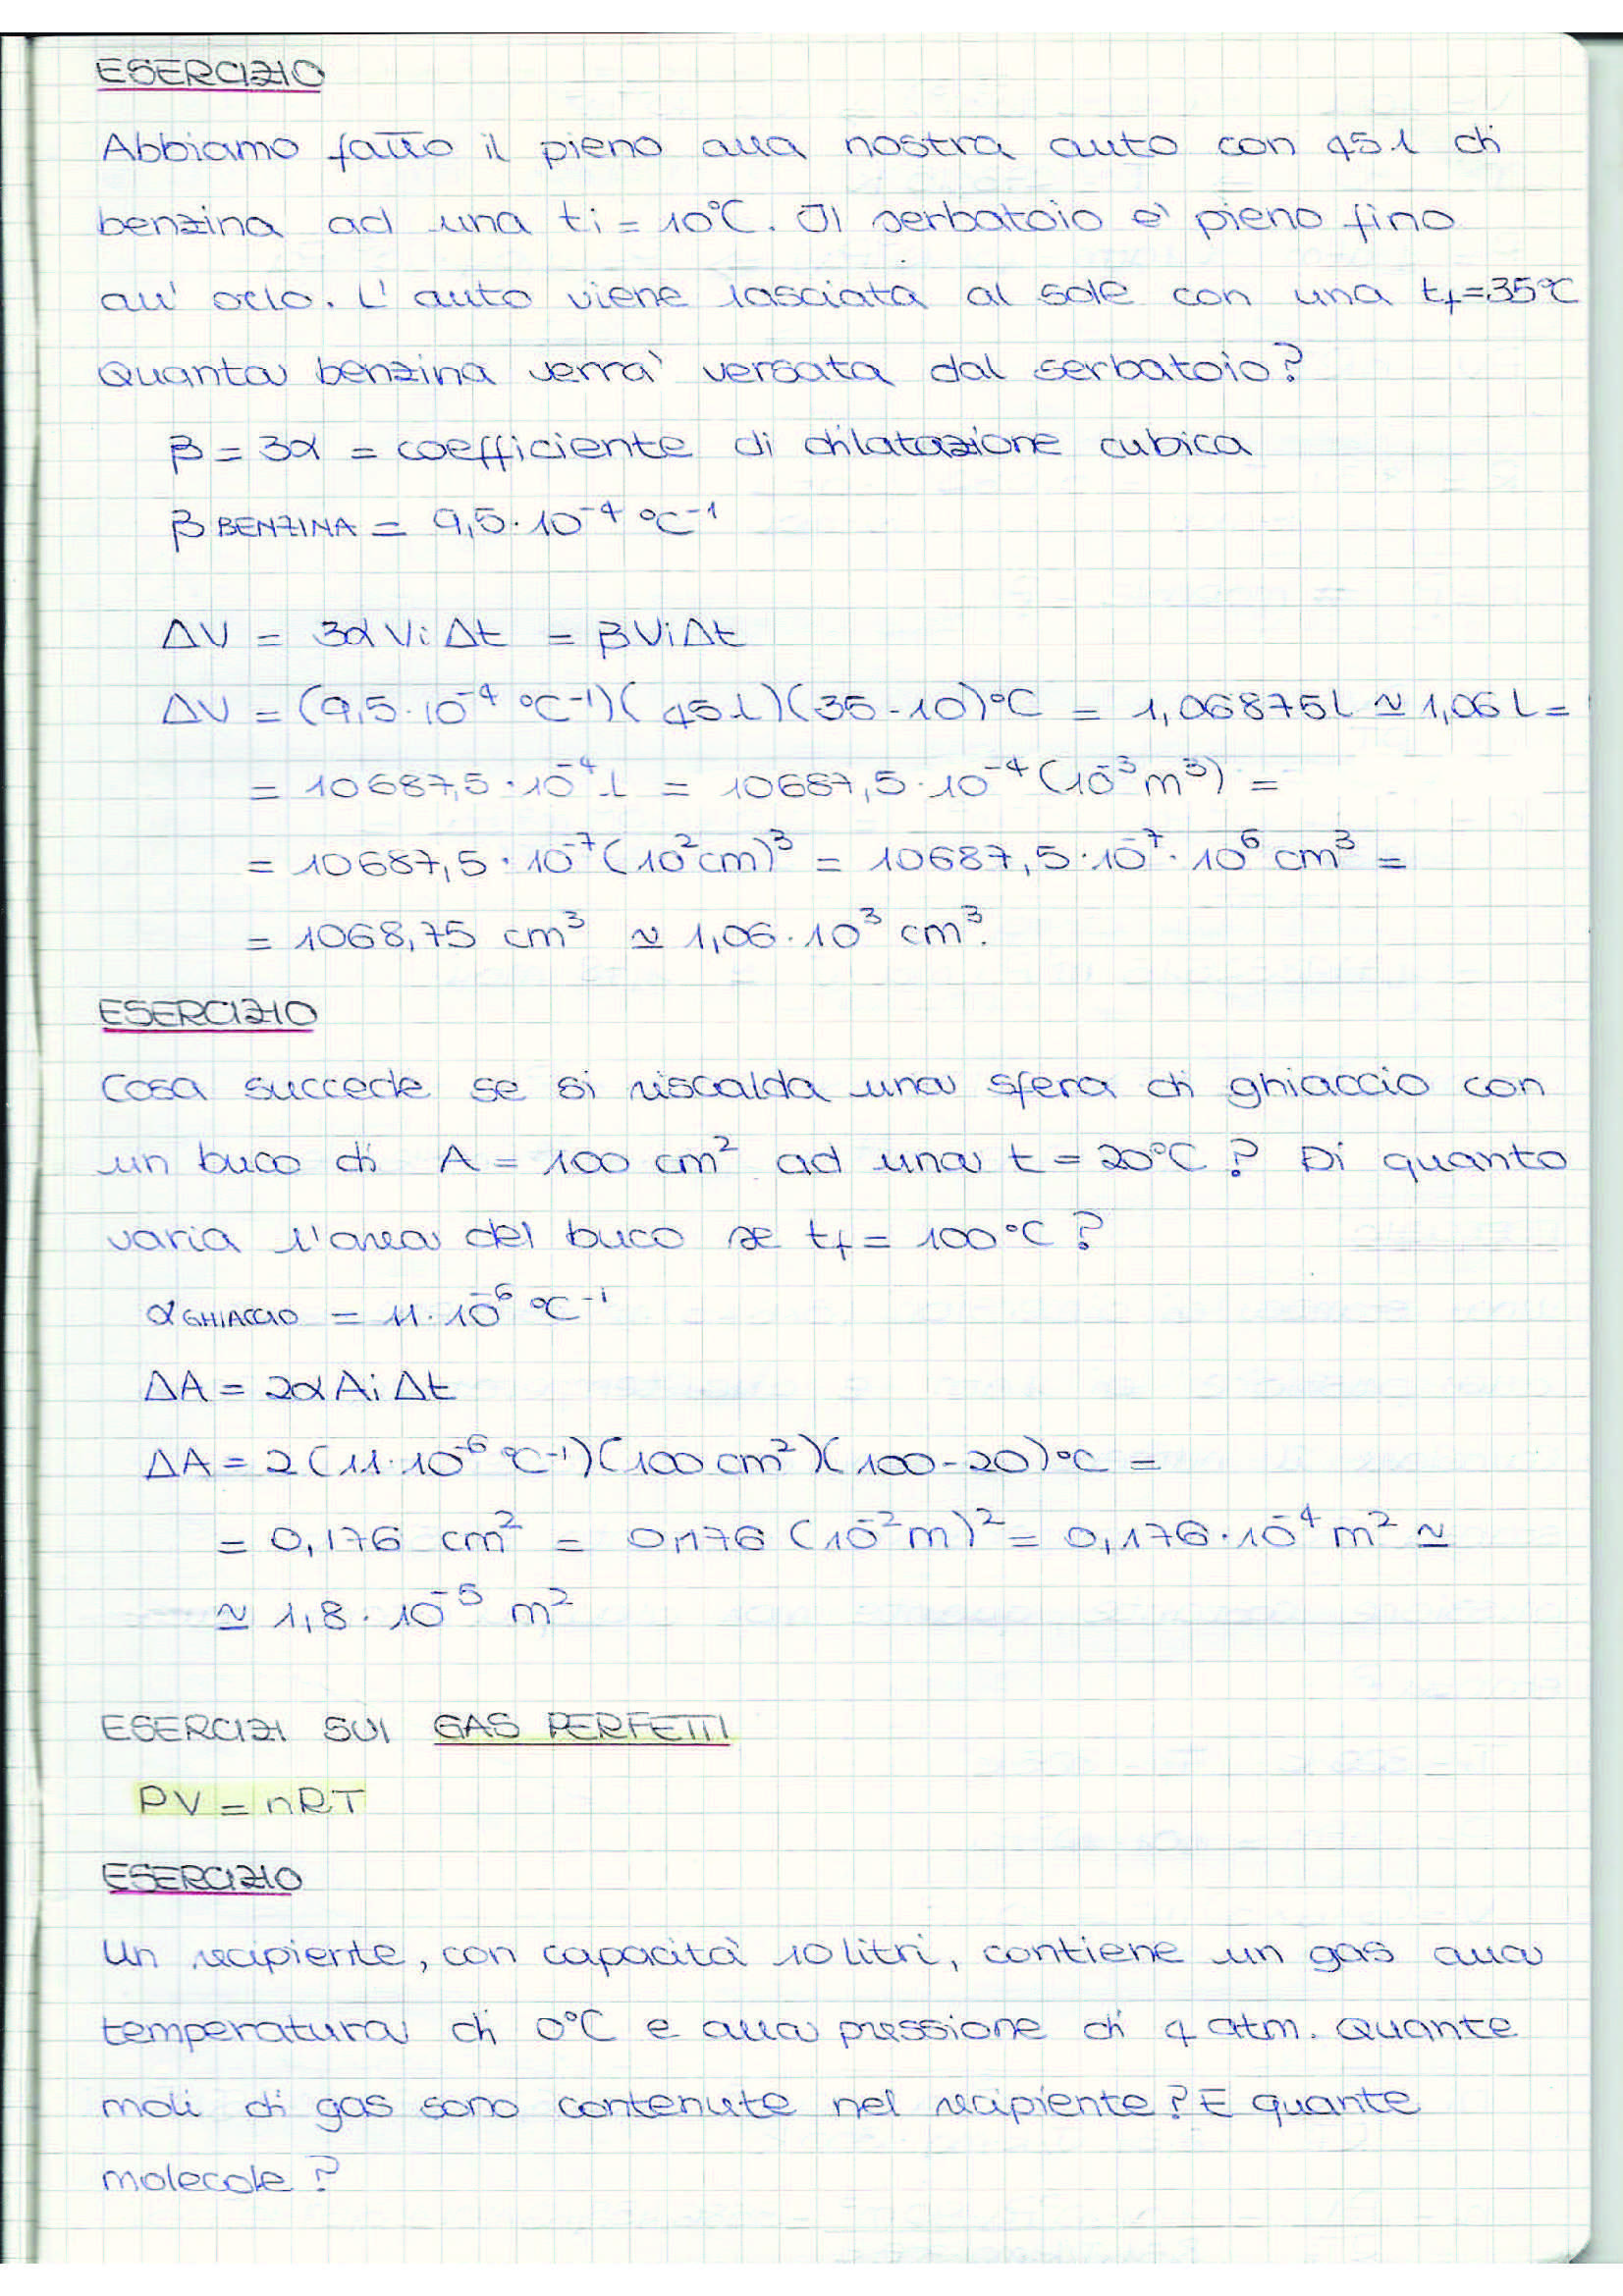 ESERCIZIO
Abbiamo fatto il pieno alla nostra auto con 45 l di
benzina ad una ti = 10°C. Il serbatoio e' pieno fino
all' orlo. L' auto viene lasciata al sole con una tf=35°C
Quanta benzina verra' versata dal serbatoio?
β = 3α = coefficiente di dilatazione cubica
β BENZINA = 9,5·10⁻⁴ °C⁻¹
ΔV = 3α Vi Δt = β Vi Δt
ΔV = (9,5·10⁻⁴ °C⁻¹)(45 l)(35-10)°C = 1,06875 l ≃ 1,06 l =
= 10687,5·10⁻⁴ l = 10687,5·10⁻⁴ (10⁻³ m³) =
= 10687,5·10⁻⁷ (10² cm)³ = 10687,5·10⁻⁷·10⁶ cm³ =
= 1068,75 cm³ ≃ 1,06·10³ cm³.
ESERCIZIO
Cosa succede se si riscalda una sfera di ghiaccio con
un buco di A = 100 cm² ad una t = 20°C? Di quanto
varia l'area del buco se tf = 100°C?
α GHIACCIO = 11·10⁻⁶ °C⁻¹
ΔA = 2α Ai Δt
ΔA = 2 (11·10⁻⁶ °C⁻¹)(100 cm²)(100-20)°C =
= 0,176 cm² = 0,176 (10⁻² m)² = 0,176·10⁻⁴ m² ≃
≃ 1,8·10⁻⁵ m²
ESERCIZI SUI GAS PERFETTI
PV = nRT
ESERCIZIO
Un recipiente, con capacità 10 litri, contiene un gas alla
temperatura di 0°C e alla pressione di 4 atm. Quante
moli di gas sono contenute nel recipiente? E quante
molecole?